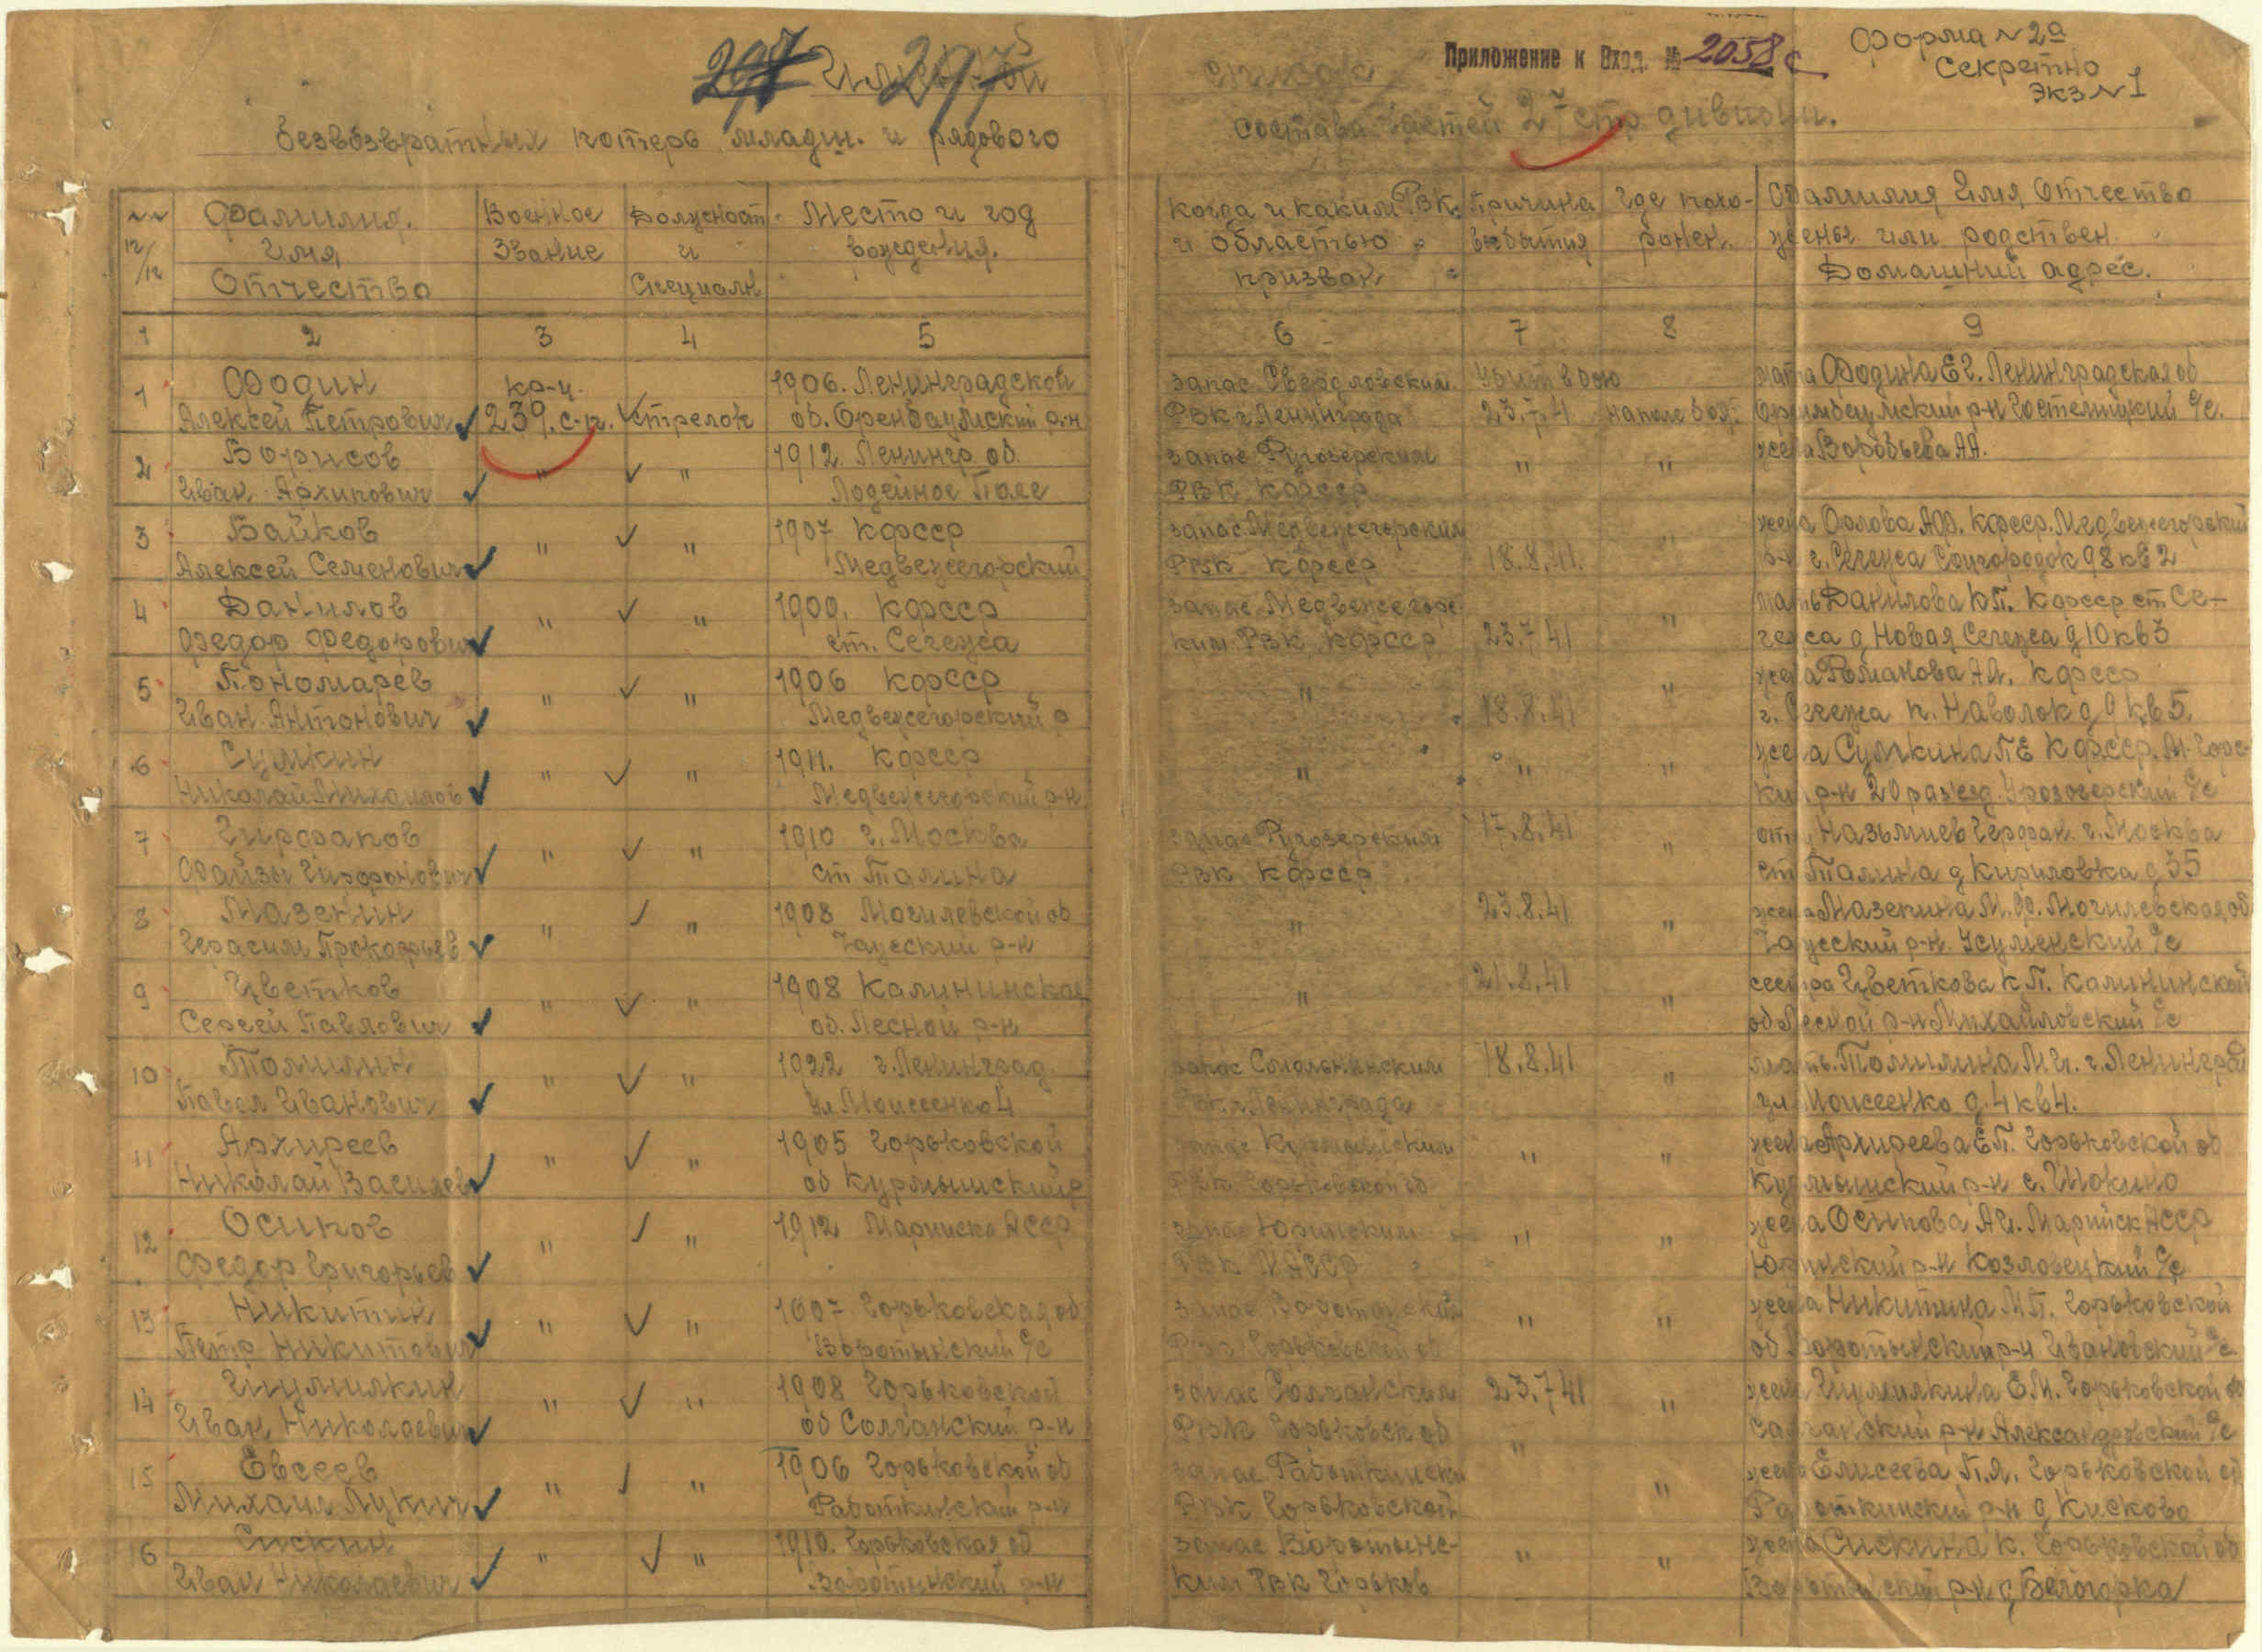 Приложение к Вход. № 2058с
Форма № 2а
Секретно
Экз № 1
297 Именной 297 список
безвозвратных потерь младш. и рядового состава частей 2й стр дивизии.
№№ п/п
Фамилия. Имя Отчество
Военное Звание
Должност и Специальн
Место и год рождения.
Когда и каким РВК и областью призван
Причина выбытия
Где похоронен.
Фамилия Имя Отчество жены или родствен. Домашний адрес.
1 2 3 4 5 6 7 8 9
1 Фодин кр-ц. 1906. Ленинградской запас Свердловским Убит в бою мать Фодина Е Г. Ленинградская об
Алексей Петрович 239. с.п. стрелок об. Оренбаумский р-н РВК г Ленинграда 23.7.41 на поле боя. Оренмбаумский р-н Гостелицкий с/с.
2 Борисов " " 1912. Ленингр. об. запас Ругозерским " " жена Воробьева А А.
Иван Архипович Лодейное Поле РВК КФССР
3 Байков " " 1907 КФССР запас Медвежегорским " жена Орлова А Ф. КФССР. Медвежегорский
Алексей Семенович Медвежегорский РВК КФССР 18.8.41. р-н г. Сегежа Соцгородок 98 кв 2
4 Данилов " " 1900. КФССР запас Медвежегорс " мать Данилова К П. КФССР ст Се-
Федор Федорович ст. Сегежа ким РВК КФССР 23.7.41 гежа д Новая Сегежа д 10 кв 3
5 Пономарев " " 1906 КФССР " " жена Романова А И. КФССР
Иван Антонович Медвежегорский р 18.8.41 г. Сегежа п. Наволок д 9 кв 5.
6 Сумкин " " 1911. КФССР " " " жена Сумкина П Е КФССР. М-Горс-
Николай Михайлов Медвежегорский р-н кий р-н 20 разъезд. Урозозерский с/с
7 Гирфанов " " 1910 г. Москва запас Ругозерским 17.8.41 " отец Назьмиев Герфан. г. Москва
Файзы Гирфонович ст Толина РВК КФССР ст Толина д Кириловка д 35
8 Мазекин " " 1908 Могилевской об " 23.8.41 " жена Мазекина М. Ф. Могилевская об
Герасим Прокофьев Чаусский р-н Чаусский р-н. Усуменский с/с
9 Цветков " " 1908 Калининская " 21.8.41 " сестра Цветкова К П. Калининской
Сергей Павлович об. Лесной р-н об Леской р-н Михайловский с/с
10 Томилин " " 1922 г. Ленинград запас Смольнинским 18.8.41 " мать. Томилина М И. г. Ленинград
Павел Иванович ул. Моисеенко 4 РВК г. Ленинграда ул Моисеенко д. 4 кв 4.
11 Архиреев " " 1905 Горьковской запас Курмышским " " жена Архиреева Е П. Горьковской об
Николай Васильев об Курмышский р РВК Горьковской об Курмышский р-н с. Шокино
12 Осипов " " 1912 Марийска АССР запас Юринским " " жена Осипова А И. Марийск АССР
Федор Григорьев РВК МАССР Юринский р-н Козловецкий с/с
13 Никитин " " 1907 Горьковская об запас Воротынским " " жена Никитина М П. Горьковской
Петр Никитович Воротынский с/с РВК Горьковской об об Воротынский р-н Ивановский с/с
14 Шумилкин " " 1908 Горьковской запас Солганским 23.7.41 " жена Шумилкина Е. М. Горьковской об
Иван Николаевич об Солганский р-н РВК Горьковск об Салганский р-н Александровский с/с
15 Евсеев " " 1906 Горьковской об запас Работкинским " " жена Елисеева П. Я. Горьковской об
Михаил Лукич Работкинский р-н РВК Горьковской Работкинский р-н д Кисково
16 Сискин " " 1910. Горьковская об запас Воротынс- " " жена Сискина К. Горьковской об
Иван Николаевич Воротынский р-н ким РВК Горьков Воротынский р-н д Белогорка